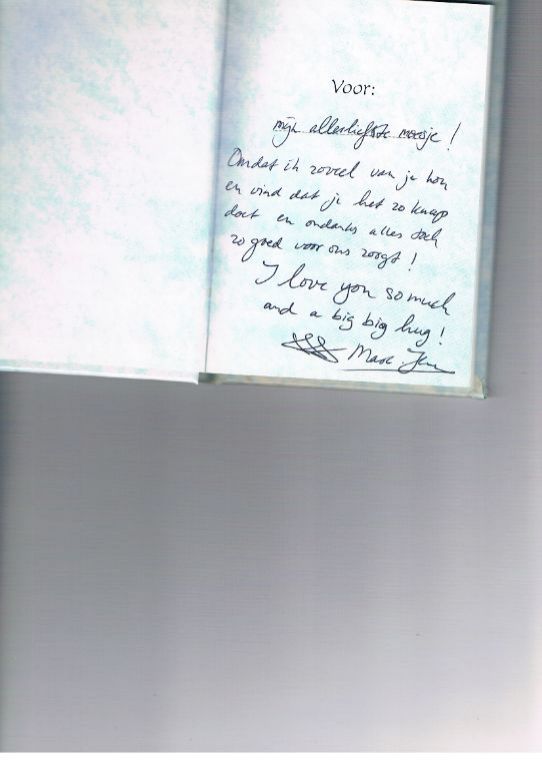 Voor:
mijn allerliefste moesje!
Omdat ik zoveel van je hou
en vind dat je het zo knap
doet en ondanks alles toch
zo goed voor ons zorgt!
I love you so much
and a big big hug!
Marc